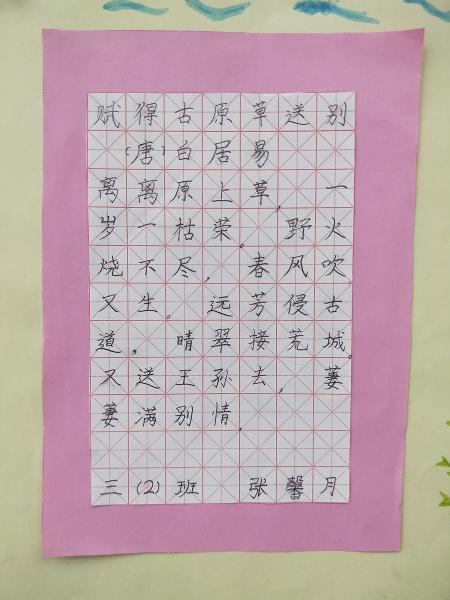 赋得古原草送别
(唐)白居易
离离原上草,一
岁一枯荣。野火
烧不尽,春风吹
又生。远芳侵古
道,晴翠接荒城。
又送王孙去,萋
萋满别情。
三(2)班 张馨月